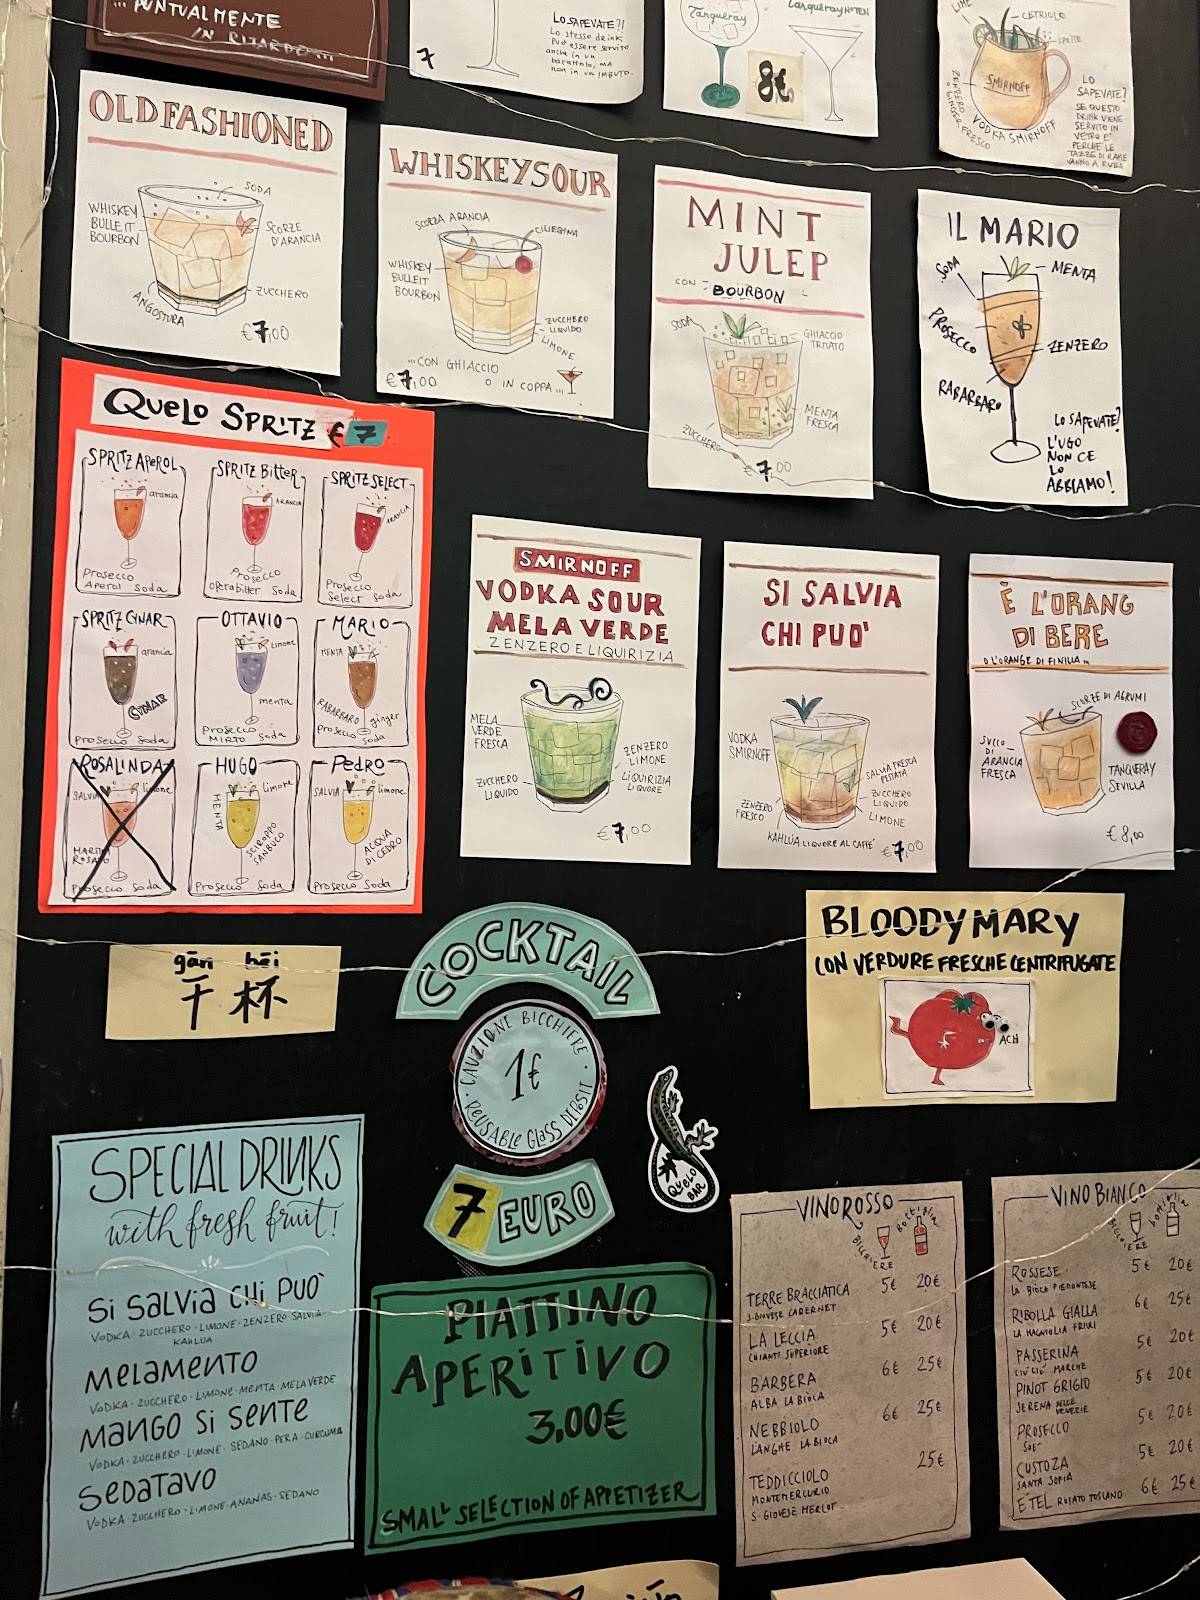 ... PUNTUALMENTE
IN RITARDO ...
7
LO SAPEVATE?!
Lo stesso drink
Può essere servito
anche in un
barattolo, MA
non in un IMBUTO.
Tanqueray
Tanqueray N°TEN
8€
LIME
CETRIOLO
SPRITE
SMIRNOFF
ZENZERO
O GINGER FRESCO
VODKA SMIRNOFF
LO
SAPEVATE?
SE QUESTO
DRINK VIENE
SERVITO IN
VETRO È
PERCHÈ LE
TAZZE DI RAME
VANNO A RUBA
OLD FASHIONED
SODA
WHISKEY
BULLEIT
BOURBON
SCORZE
D'ARANCIA
ZUCCHERO
ANGOSTURA
€7,00
WHISKEY SOUR
SCORZA ARANCIA
CILIEGINA
WHISKEY
BULLEIT
BOURBON
ZUCCHERO
LIQUIDO
LIMONE
...CON GHIACCIO
O IN COPPA...
€7,00
MINT
JULEP
CON BOURBON
SODA
GHIACCIO
TRITATO
MENTA
FRESCA
ZUCCHERO
€7,00
IL MARIO
SODA
MENTA
PROSECCO
ZENZERO
RABARBARO
LO SAPEVATE?
L'UGO
NON CE
LO
ABBIAMO!
QUELO SPRITZ € 7
SPRITZ APEROL
arancia
Prosecco
Aperol Soda
SPRITZ BITTER
ARANCIA
Prosecco
Operabitter Soda
SPRITZ SELECT
ARANCIA
Prosecco
Select Soda
SPRITZ CYNAR
arancia
CYNAR
Prosecco Soda
OTTAVIO
limone
menta
Prosecco
MIRTO Soda
MARIO
MENTA
RABARBARO
ginger
Prosecco
Soda
ROSALINDA
SALVIA
limone
MARTINI
ROSATO
Prosecco Soda
HUGO
limone
MENTA
SCIROPPO
SANBUCO
Prosecco Soda
PEDRO
SALVIA
limone
ACQUA
DI CEDRO
Prosecco Soda
SMIRNOFF
VODKA SOUR
MELA VERDE
ZENZERO E LIQUIRIZIA
MELA
VERDE
FRESCA
ZENZERO
LIMONE
ZUCCHERO
LIQUIDO
LIQUIRIZIA
LIQUORE
€7,00
SI SALVIA
CHI PUO'
VODKA
SMIRNOFF
SALVIA FRESCA
PESTATA
ZUCCHERO
LIQUIDO
LIMONE
ZENZERO
FRESCO
KAHLUA LIQUORE AL CAFFE'
€7,00
È L'ORANG
DI BERE
O L'ORANGE DI FINILLA...
SCORZE DI AGRUMI
SUCCO
DI
ARANCIA
FRESCA
TANQUERAY
SEVILLA
€8,00
gān bēi
干杯
COCKTAIL
CAUZIONE BICCHIERE
1€
REUSABLE GLASS DEPOSIT
7 EURO
QUELO
BAR
BLOODY MARY
CON VERDURE FRESCHE CENTRIFUGATE
ACH
SPECIAL DRINKS
with fresh fruit!
Si Salvia chi può
VODKA · ZUCCHERO · LIMONE · ZENZERO SALVIA
KAHLUA
MELAMENTO
VODKA · ZUCCHERO · LIMONE · MENTA · MELA VERDE
MANGO SI SENTE
VODKA · ZUCCHERO · LIMONE · SEDANO · PERA · CURCUMA
SEDATAVO
VODKA · ZUCCHERO · LIMONE · ANANAS · SEDANO
PIATTINO
APERITIVO
3,00€
SMALL SELECTION OF APPETIZER
VINO ROSSO
BICCHIERE
Bottiglia
TERRE BRACCIATICA 5€ 20€
SANGIOVESE CABERNET
LA LECCIA 5€ 20€
CHIANTI SUPERIORE
BARBERA 6€ 25€
ALBA LA BIÒCA
NEBBIOLO 6€ 25€
LANGHE LA BIOCA
TEDDICCIOLO 25€
MONTEMERCURIO
S. GIOVESE MERLOT
VINO BIANCO
BICCHIERE
bottiglia
ROSSESE 5€ 20€
LA BIÒCA PIEMONTESE
RIBOLLA GIALLA 6€ 25€
LA MAGNOLIA FRIULI
PASSERINA 5€ 20€
CIÙ CIÙ MARCHE
PINOT GRIGIO 5€ 20€
SERENA DELLE
VENEZIE
PROSECCO 5€ 20€
CUSTOZA 5€ 20€
SANTA SOFIA
ETEL ROSATO TOSCANO 6€ 25€